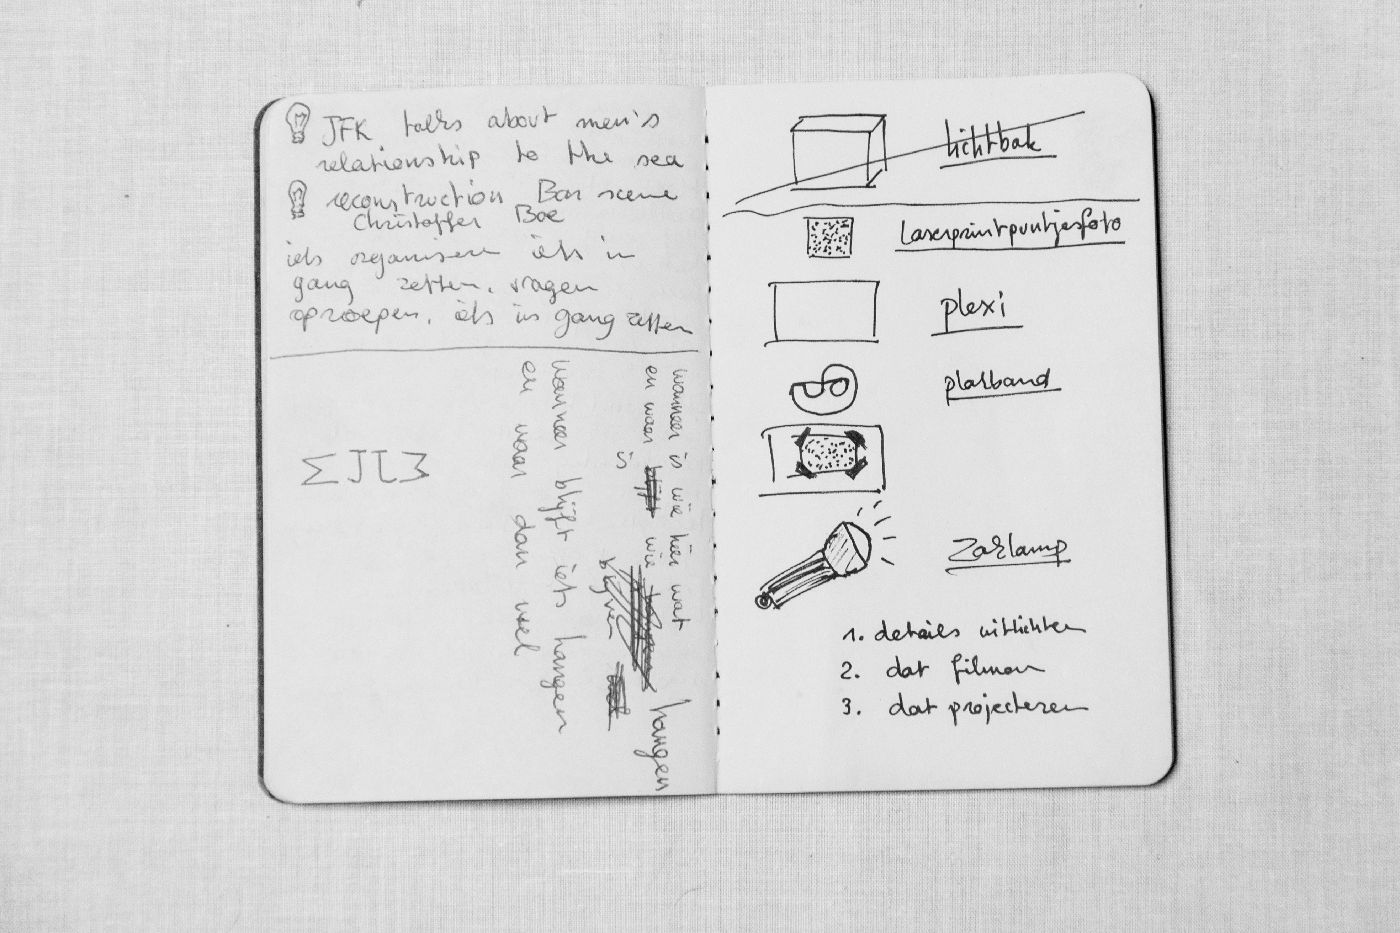 JFK talks about men's
relationship to the sea
reconstruction Bar scene
Christoffer Boe
iets organiseren iets in
gang zetten, vragen
oproepen, iets in gang zetten
wanneer is wie hier wat
en waar blijft wie hangen
is
blijven
wanneer blijft iets hangen
en waar dan wel
lichtbak
laserprintpuntjesfoto
plexi
plakband
Zaklamp
1. details uitlichten
2. dat filmen
3. dat projecteren